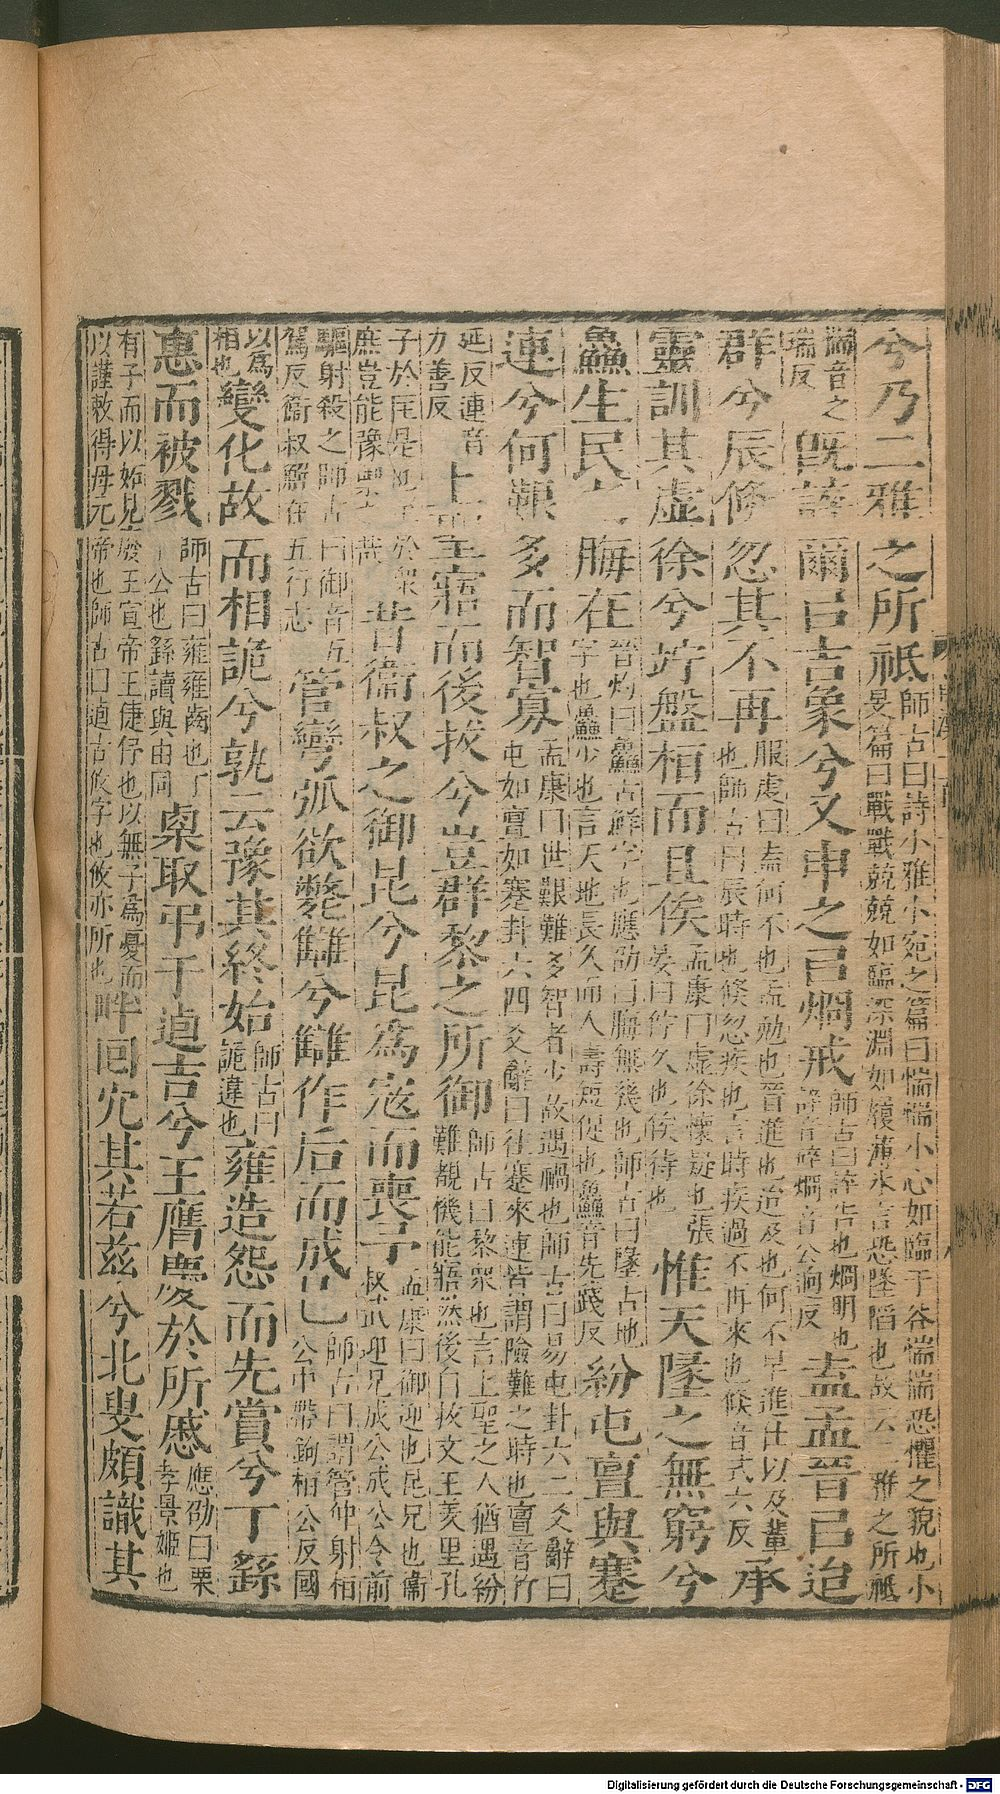 兮乃二雅之所祗師古曰詩小雅小宛之篇曰惴惴小心如臨于谷惴惴恐懼之貌也小旻篇曰戰戰兢兢如臨深淵如履薄冰言恐墜陷也故云二雅之所祗
惴音之瑞反既誶爾㠯吉象兮又申之㠯烱戒師古曰誶告也烱明也誶音碎烱音公迥反盍孟晉㠯迨
群兮辰倏忽其不再服虔曰盍何不也孟勉也晉進也迨及也何不早進仕以及輩也師古曰辰時也倏忽疾也言時疾過不再來也倏音式六反承
靈訓其虛徐兮竚盤桓而且俟孟康曰虛徐懷疑也張晏曰竚久也俟待也惟天墬之無窮兮
鱻生民之晦在晉灼曰鱻古鮮字也應劭曰晦無幾也師古曰墬古地字也鱻少也言天地長久而人壽短促也鱻音先踐反紛屯亶與蹇
連兮何艱多而智寡孟康曰世艱難多智者少故遇禍也師古曰易屯卦六二爻辭曰屯如亶如蹇卦六四爻辭曰往蹇來連皆謂險難之時也亶音竹
延反連音力善反上聖寤而後拔兮豈群黎之所御師古曰黎眾也言上聖之人猶遇紛難覩機能寤然後自拔文王羑里孔
子於匡是也於眾庶豈能豫禦之昔衞叔之御昆兮昆為寇而喪予孟康曰御迎也昆兄也衞叔武迎兄成公成公令前
驅射殺之師古曰御音五駕反衞叔解在五行志管彎弧欲斃讎兮讎作后而成己師古曰謂管仲射桓公中帶鉤桓公反國
以為相也變化故而相詭兮孰云豫其終始師古曰詭違也雍造怨而先賞兮丁繇
惠而被戮師古曰雍雍齒也丁丁公也繇讀與由同㮚取弔于逌吉兮王膺慶於所慼應劭曰栗孝景姬也
有子而以妬見廢王宣帝王倢伃也以無子為憂而以謹敕得母元帝也師古曰逌古攸字也攸亦所也畔回穴其若茲兮北叟頗識其
Digitalisierung gefördert durch die Deutsche Forschungsgemeinschaft - DFG